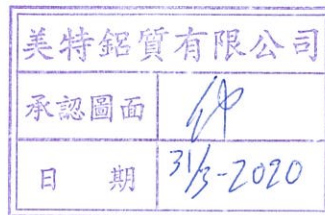 美特鋁質有限公司
承認圖面
日期 31/3-2020